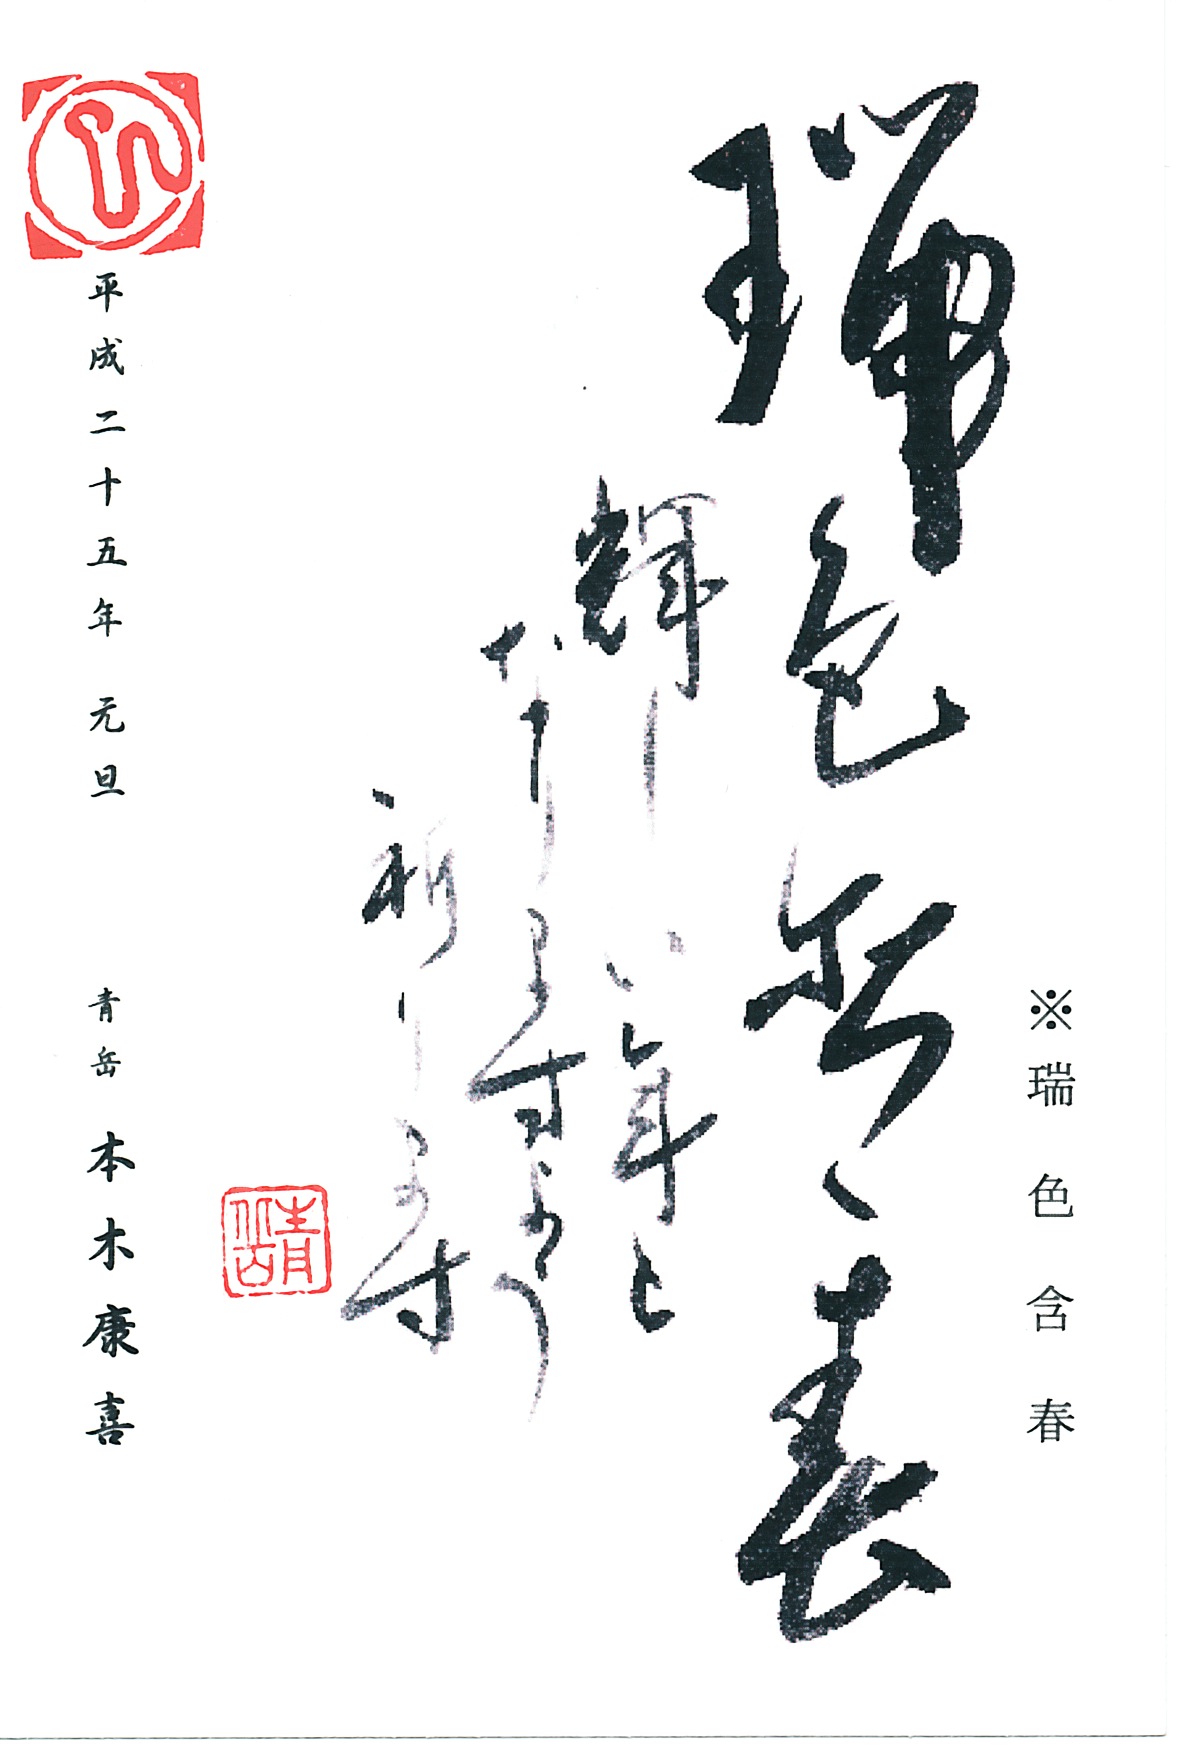 ※瑞色含春
瑞色含春
輝しい年と
なりますよう
祈ります
青岳
平成二十五年 元旦 青岳 本木康喜